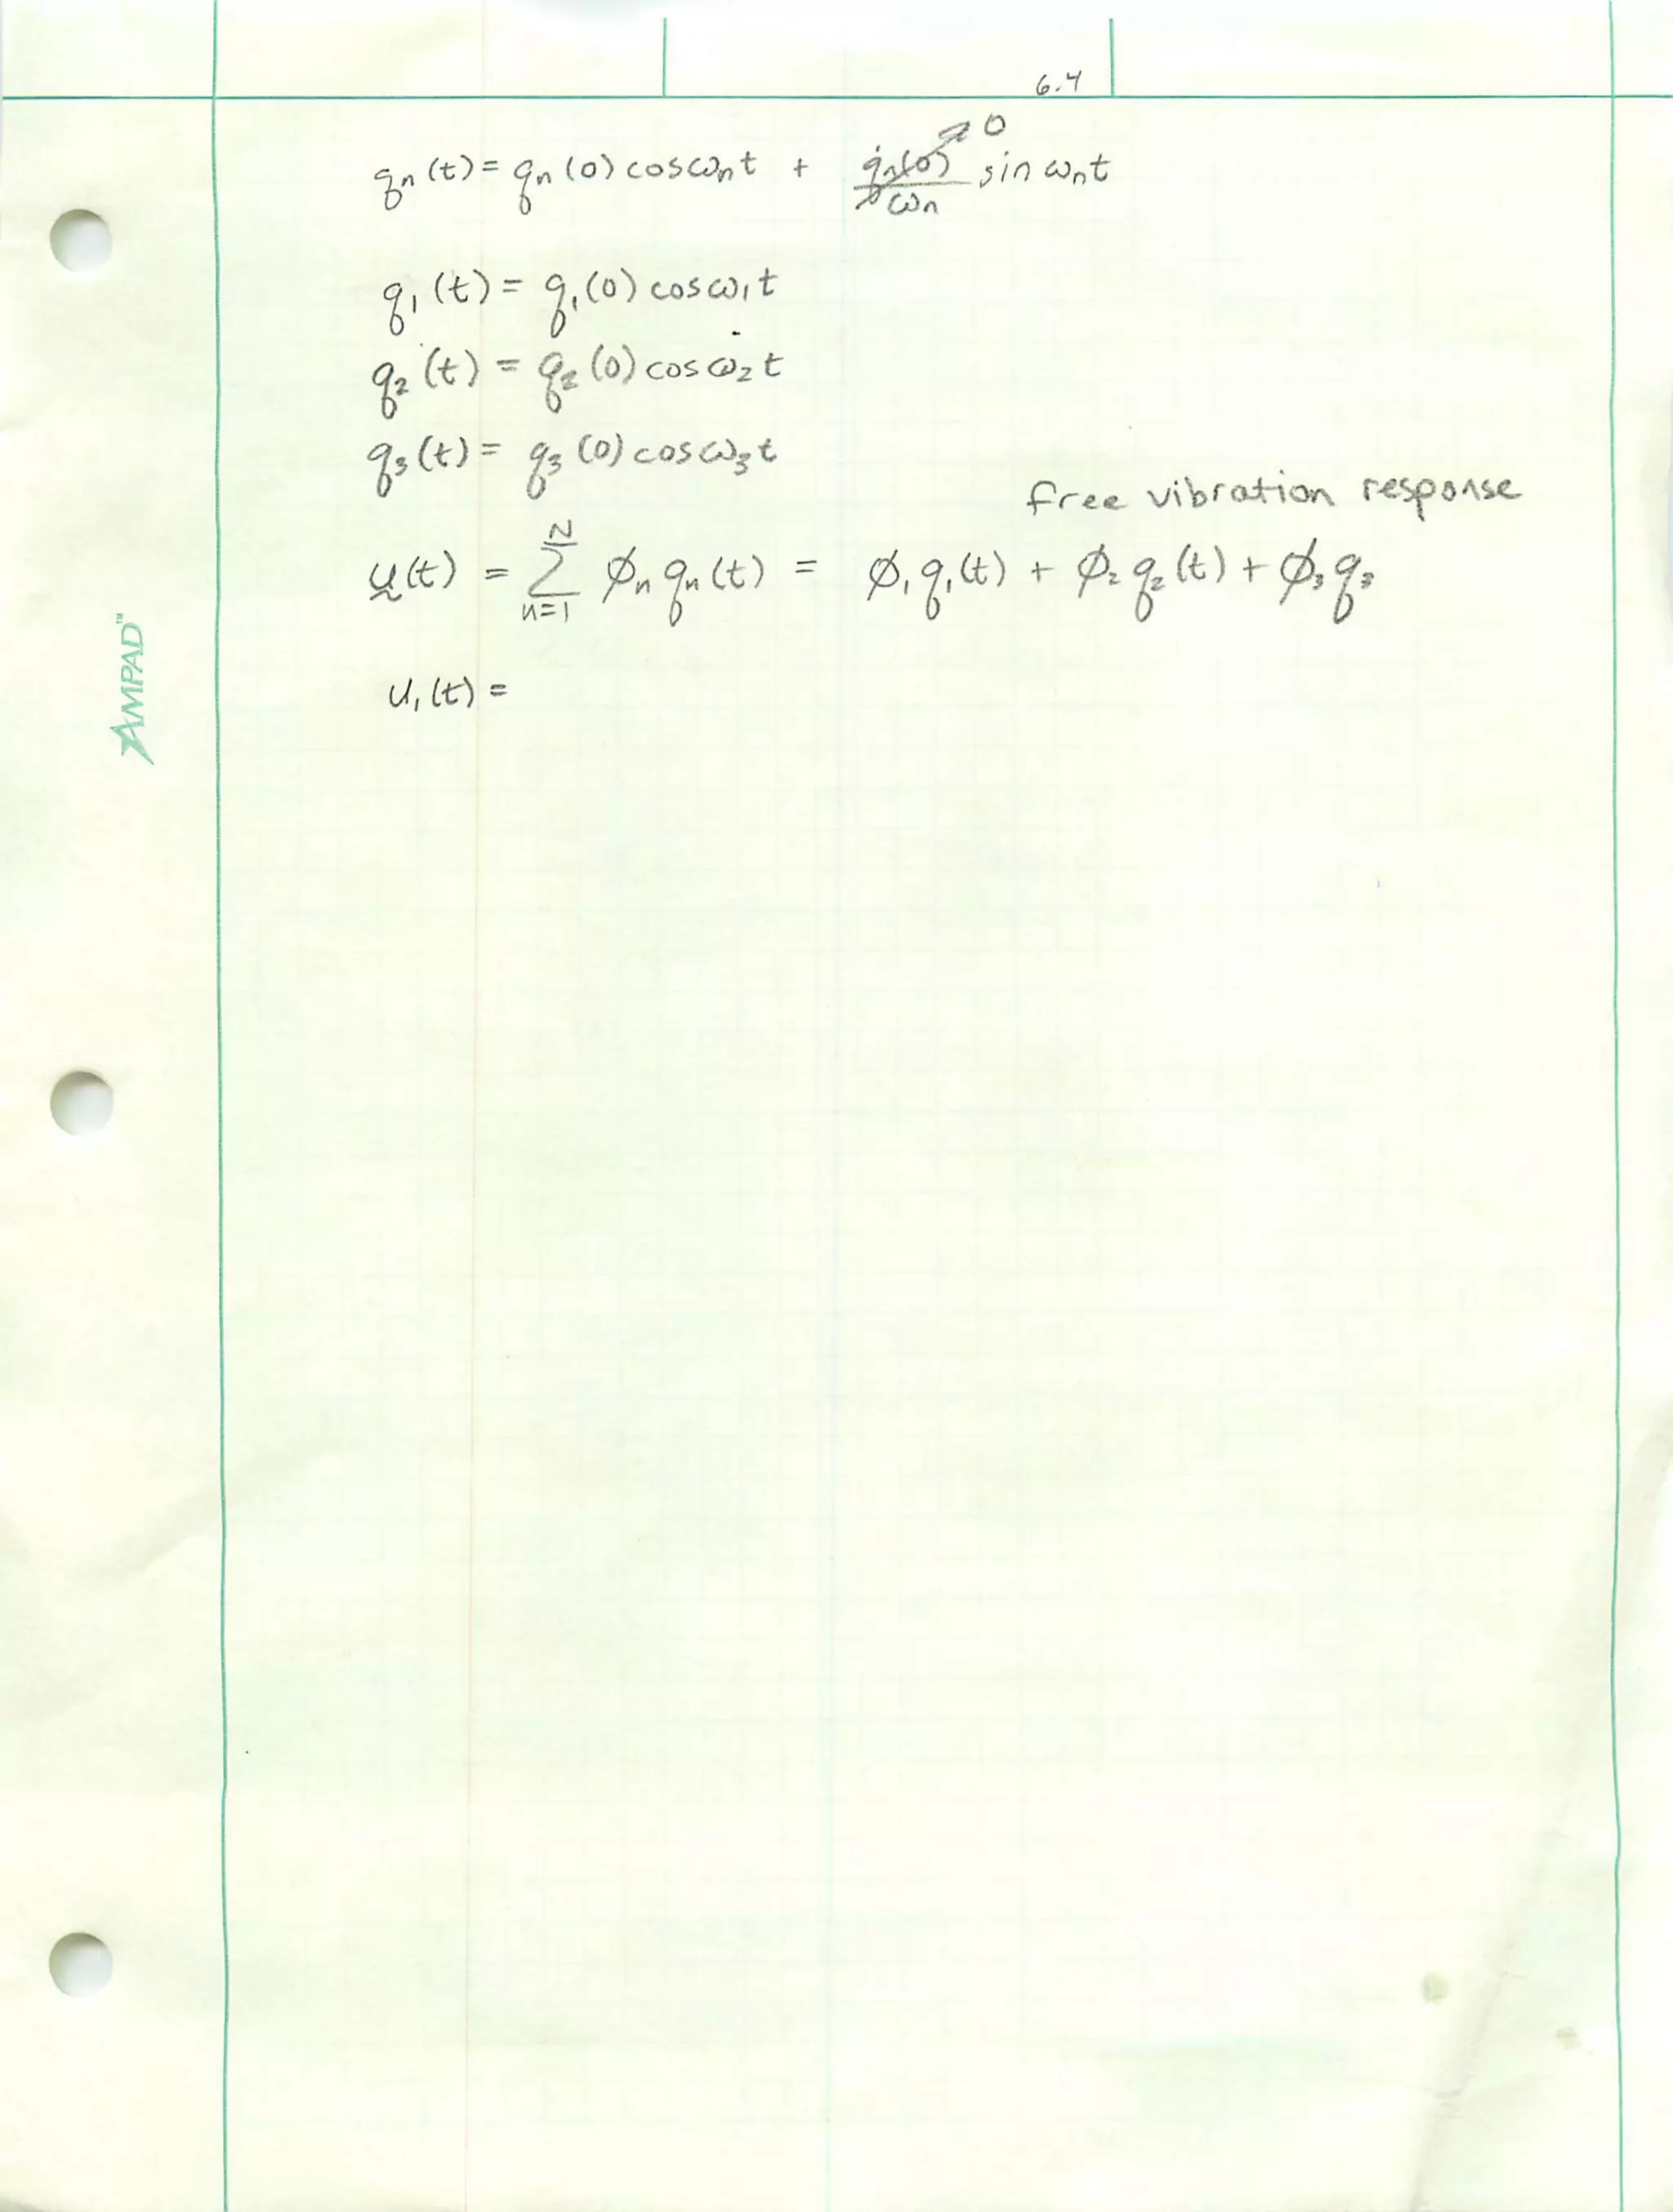 6.4
qₙ(t) = qₙ(0) cosωₙt + q̇ₙ(0)/ωₙ sinωₙt → 0
q₁(t) = q₁(0) cosω₁t
q₂(t) = q₂(0) cosω₂t
q₃(t) = q₃(0) cosω₃t
free vibration response
u(t) = Σ_{n=1}^{N} ϕₙ qₙ(t) = ϕ₁q₁(t) + ϕ₂q₂(t) + ϕ₃q₃
AMPAD™
u₁(t) =